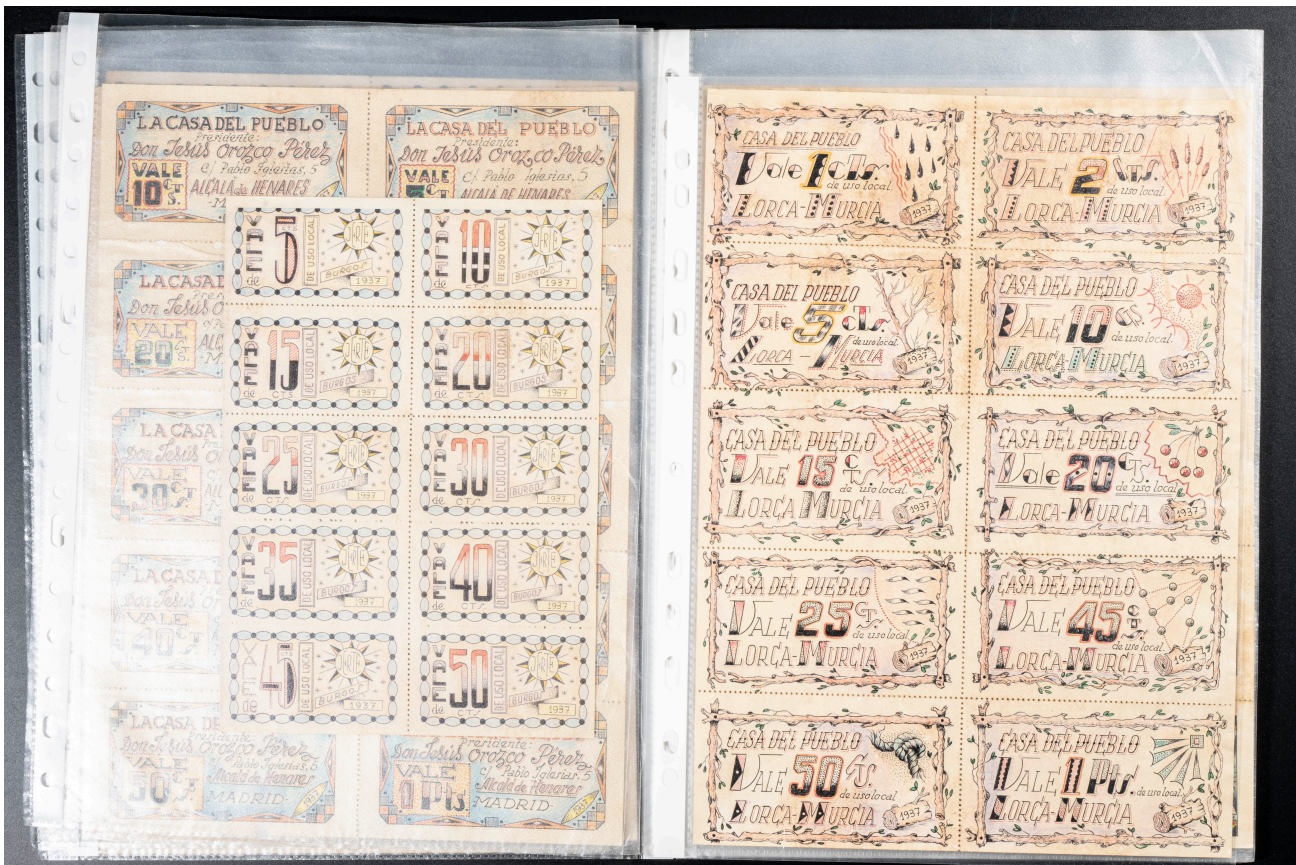 LA CASA DEL PUEBLO
Presidente:
Don Jesús Orozco Pérez
VALE 10 CTS.
C/ Pablo Iglesias, 5
ALCALÁ de HENARES
LA CASA DEL PUEBLO
Presidente:
Don Jesús Orozco Pérez
VALE 5 CT
C/ Pablo Iglesias, 5
ALCALÁ DE HENARES
LA CASA
Don Jesús
VALE
20 CTS.
LA CASA
Don Jesús
VALE
30 CTS.
LA CASA
Don Jesús
VALE
40 CTS.
LA CASA DE
Presidente:
Don Jesús Orozco Pérez
Pablo Iglesias, 5
VALE
50 CTS.
Alcalá de Henares
MADRID-
1937
Presidente:
Don Jesús Orozco Pérez
C/ Pablo Iglesias, 5
VALE
1 Pts.
Alcalá de Henares
MADRID-
1937
VALE de 5
DE USO LOCAL
JARTE
BURGOS
1937
VALE de 10
DE USO LOCAL
JARTE
BURGOS
1937
VALE de 15 CTS
DE USO LOCAL
JARTE
BURGOS
1937
VALE de 20 CTS
DE USO LOCAL
JARTE
BURGOS
1937
VALE de 25
DE USO LOCAL
JARTE
BURGOS
1937
VALE de 30 CTS
DE USO LOCAL
JARTE
BURGOS
1937
VALE de 35
DE USO LOCAL
JARTE
BURGOS
1937
VALE de 40 CTS.
DE USO LOCAL
JARTE
BURGOS
1937
VALE de 45
DE USO LOCAL
JARTE
BURGOS
1937
VALE de 50 CTS
DE USO LOCAL
JARTE
BURGOS
1937
CASA DEL PUEBLO
Vale 1 CTS.
de uso local.
LORCA-MURCIA
1937
CASA DEL PUEBLO
VALE 2 CTS.
de uso local.
LORCA-MURCIA
1937
CASA DEL PUEBLO
Vale 5 CTS.
de uso local.
LORCA - MURCIA
1937
CASA DEL PUEBLO
VALE 10 CTS.
de uso local.
LORCA-MURCIA
1937
CASA DEL PUEBLO
VALE 15 CTS.
de uso local.
LORCA MURCIA
1937
CASA DEL PUEBLO
Vale 20 CTS.
de uso local.
LORCA-MURCIA
1937
CASA DEL PUEBLO
VALE 25 CTS.
de uso local.
LORCA-MURCIA
1937
CASA DEL PUEBLO
VALE 45 CTS.
de uso local.
LORCA-MURCIA
1937
CASA DEL PUEBLO
VALE 50 CTS.
de uso local.
LORCA-MURCIA
1937
CASA DEL PUEBLO
VALE 1 Pts.
de uso local.
LORCA-MURCIA
1937